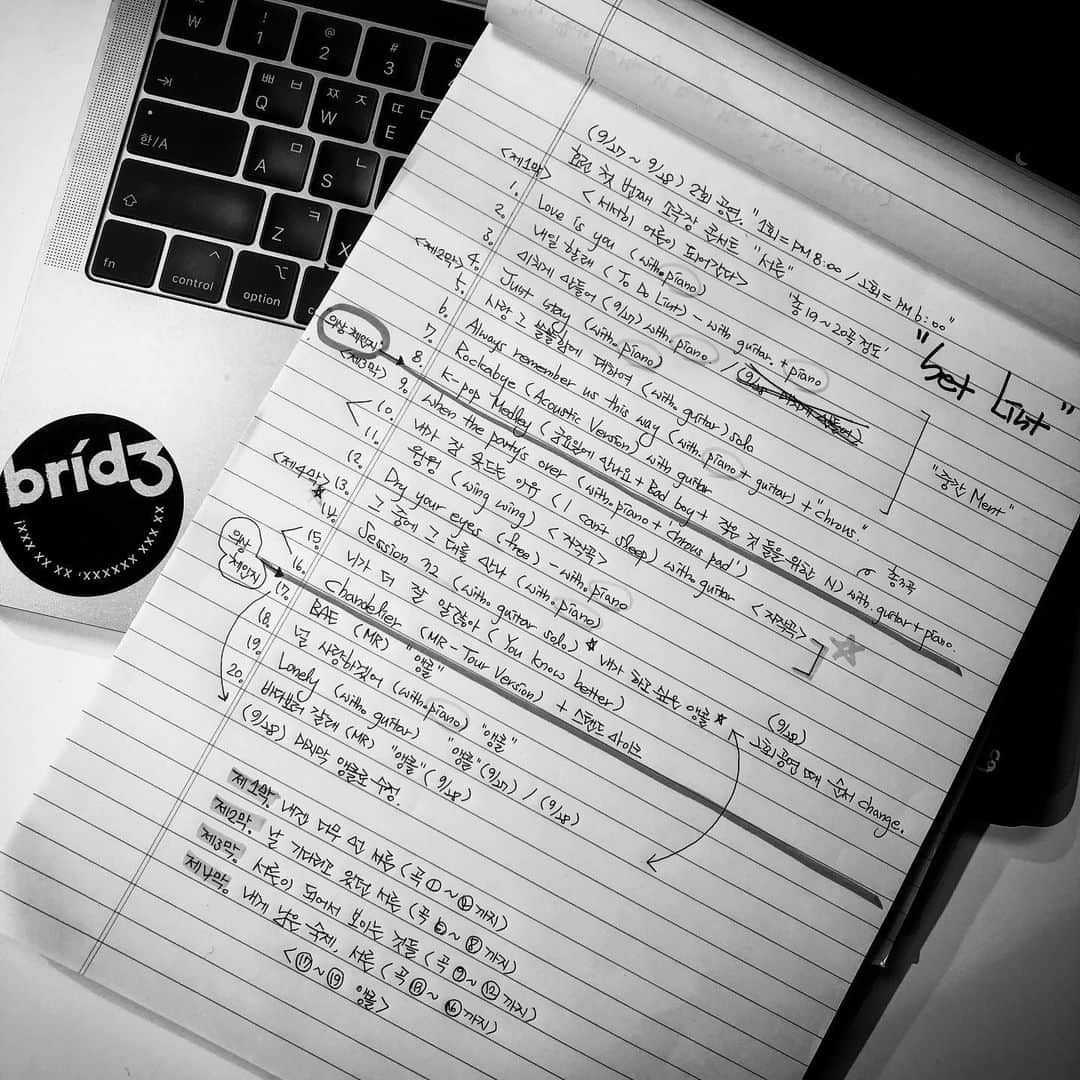 ~ W
! 1
@ 2
# 3
$
→|
ㅃ ㅂ Q
ㅉ ㅈ W
ㄸ ㄷ E
한/A
ㅁ A
ㄴ S
⇧
ㅋ Z
X
fn
^ control
⌥ option
bríd3
(9/27 ~ 9/28) 2회 공연. "1회 = PM 8:00 / 2회 = PM 6:00"
첫 번째 소극장 콘서트 "서른"
<서서히 어른이 되어간다> '총 19 ~ 20곡 정도'
"Set List"
<제1막>
1. Love is you (with. piano)
2. 내일 할래 (To Do List) - with guitar. + piano
3. 미치게 만들어 (9/27) with. piano /
4. Just stay (with. piano)
<제2막>
5. 사랑 그 쓸쓸함에 대하여 (with. guitar) solo
6. Always remember us this way (with. piano + guitar) + "chrous".
7. Rockabye (Acoustic Version) with guitar
8. K-pop Medley (금요일에 만나요 + Bad boy + 작은 것들을 위한 시) with. guitar + piano.
총 3곡
"중간 Ment"
의상 체인지
<제3막>
9. When the party's over (with. piano + 'chrous pad')
10. 내가 잘 못드는 이유 (I can't sleep) with guitar <자작곡>
11. 윙윙 (wing wing) <자작곡>
12. Dry your eyes (free) - with. piano
<제4막>
13. 그 중에 그대를 만나 (with. piano)
14. Session 소개 (with. guitar solo) ★ 내가 하고 싶은 앵콜 ★
15. 네가 더 잘 알잖아 (You know better)
16. Chandelier (MR - Tour Version) + 스탠드 마이크
의상 체인지
17. BAE (MR) "앵콜"
18. 널 사랑하겠어 (with. piano) "앵콜"
19. Lonely (with. guitar) "앵콜" (9/27) / (9/28)
20. 바다보러 갈래 (MR) "앵콜" (9/28)
(9/28) 마지막 앵콜로 수정.
(9/28)
2회 공연 때 순서 change.
제1막. 내겐 너무 선 서른 (곡 ①~④까지)
제2막. 날 기다리고 있던 서른 (곡 ⑤~⑧까지)
제3막. 서른이 되어서 보이는 것들 (곡 ⑨~⑫까지)
제4막. 내게 남은 숙제, 서른 (곡 ⑬~⑯까지)
<⑰~⑲ 앵콜>